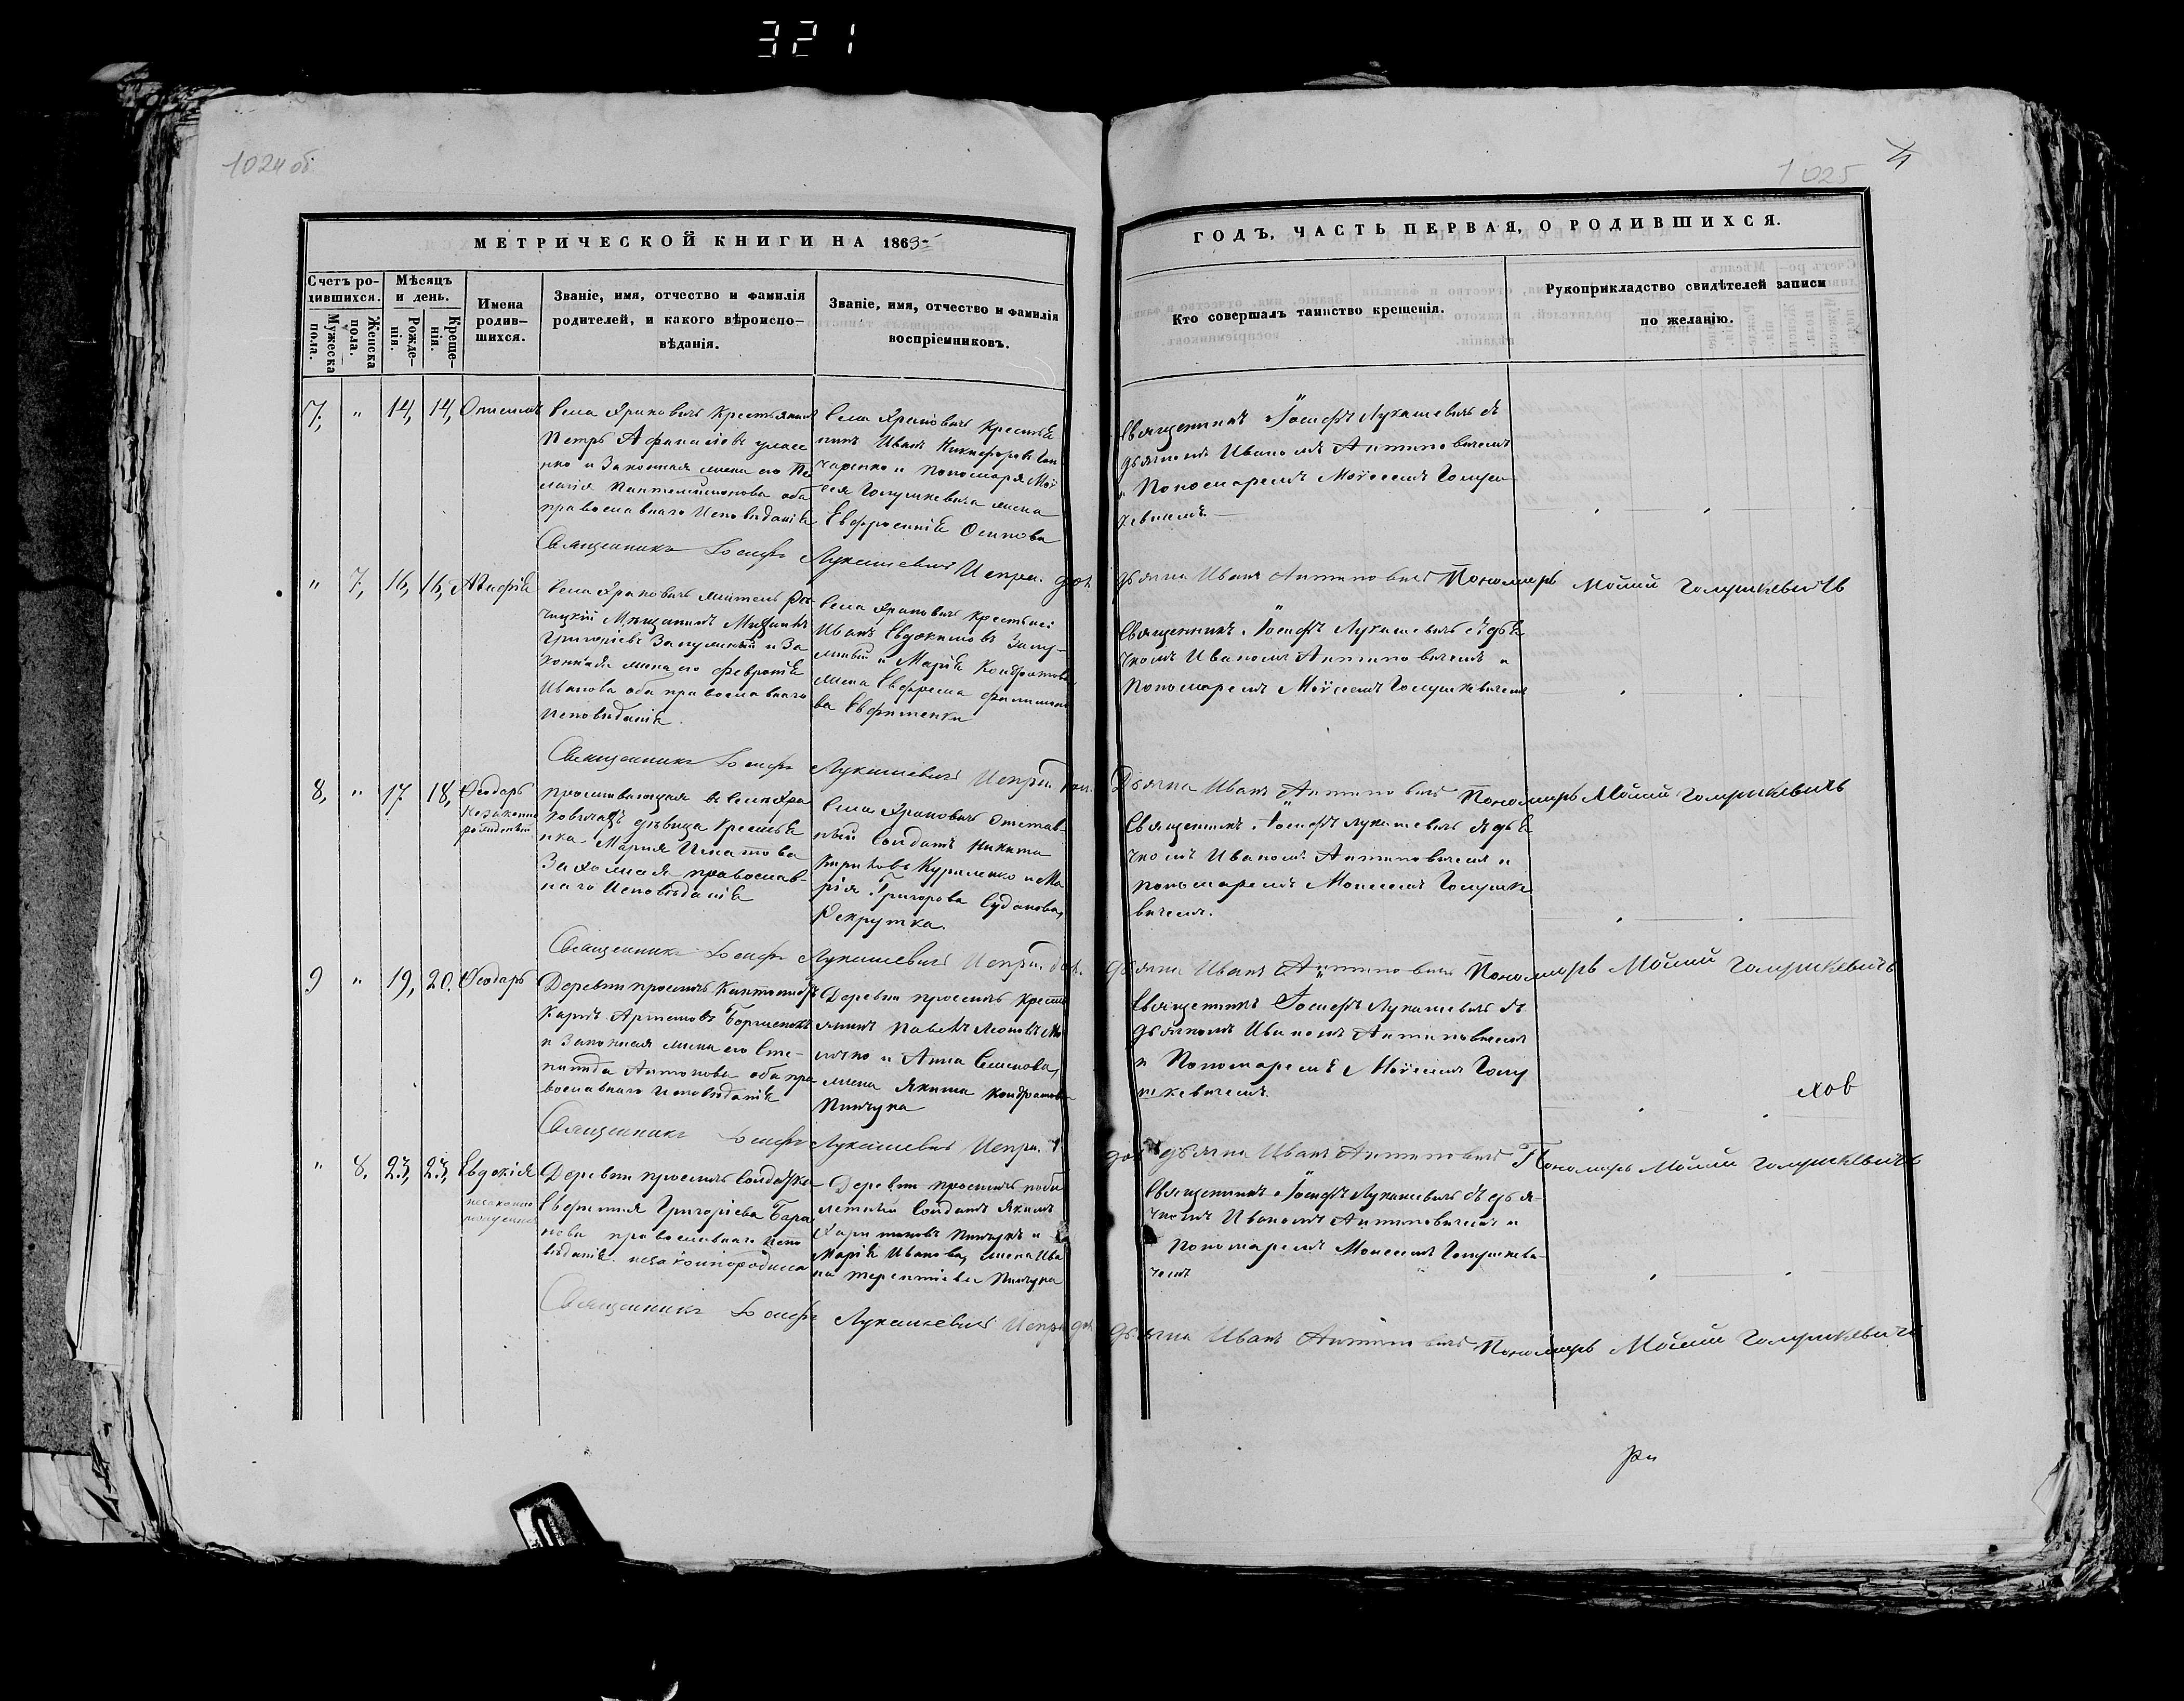 321
1024 об
1025
4
МЕТРИЧЕСКОЙ КНИГИ НА 1863
ГОДЪ, ЧАСТЬ ПЕРВАЯ, О РОДИВШИХСЯ.
Счетъ ро-
дившихся.
Мужеска
пола.
Женска
пола.
Мѣсяцъ
и день.
Рожде-
нія.
Креще-
нія.
Имена
родив-
шихся.
Званіе, имя, отчество и фамилія
родителей, и какого вѣроиспо-
вѣданія.
Званіе, имя, отчество и фамилія
воспріемниковъ.
Кто совершалъ таинство крещенія.
Рукоприкладство свидѣтелей записи
по желанію.
7, " 14, 14,
Села Храковичъ Крестьянинъ
Петръ Афанасіевъ
и Законная жена его Пе
лагія Пантелиймонова оба
православнаго Исповѣданія
Села Храковичъ Крестья
нинъ Иванъ Никифоровъ Гон
чаренко и Пономаря Мої
сея Голушкевича жена
Евфросинія Осипова
Священникъ Іосифъ Лукашевичъ съ
дьячкомъ Иваномъ Антиповичемъ
и Пономаремъ Моїсеемъ Голуш
кевичемъ.
Священникъ Іосифъ Лукашевичъ Испра. дол.
дьячка Иванъ Антиповичъ Пономарь Мойсій Голушкевичъ
" 7, 16, 16, Агафія
Села Храковичъ житель Рѣ
чицкій Мѣщанинъ
Григоріевъ и За
конная жена его Февронія
Иванова оба православнаго
исповѣданія.
Села Храковичъ Крестьяне
Иванъ Евдокимовъ
и Марія Кондратова
жена Ефрема
ва Евфименки
Священникъ Іосифъ Лукашевичъ съ дья
чкомъ Иваномъ Антиповичемъ и
Пономаремъ Моїсеемъ Голушкевичемъ
Священникъ Іосифъ Лукашевичъ Испра. дол.
Дьячка Иванъ Антиповичъ Пономарь Мойсій Голушкевичъ
8, " 17 18, Ѳеодоръ
незаконно
рожденный
проживающая въ Селѣ Хра
ковичахъ дѣвица Крестья
нка Мария Игнатова
православ-
наго Исповѣданія
Села Храковичъ отстав-
ный Солдатъ Никита
Кириловъ Куриленко и Ма
рія Григорова Судакова,
Рекрутка.
Священникъ Іосифъ Лукашевичъ съ дья
чкомъ Иваномъ Антиповичемъ и
пономаремъ Моисеемъ Голушке
вичемъ.
Священникъ Іосифъ Лукашевичъ Испра. дол.
дьячка Иванъ Антиповичъ Пономарь Мойсій Голушкевичъ
9 " 19, 20. Ѳеодоръ
Деревни просмичъ
Карпъ Артемовъ
и Законная жена его Сте-
панида Антонова оба пра
вославнаго исповѣданія
Деревни просмичъ Кресть
янинъ Павелъ
и Анна Семенова,
жена Якима Кондратова
Пинчука
Священникъ Іосифъ Лукашевичъ съ
дьячкомъ Иваномъ Антиповичемъ
и Пономаремъ Моїсеемъ Голу
шкевичемъ.
Священникъ Іосифъ Лукашевичъ Испра.
дол. дьячка Иванъ Антиповичъ Пономарь Мойсій Голушкевичъ
" 8. 23, 23, Евдокія
незаконно
рожденная
Деревни просмичъ Солдатка
Евфимия Григоріева Бара
нова православнаго испо
вѣданія. незаконнородила
Деревни просмичъ
Солдатъ Якимъ
Харитоновъ Пинчукъ и
Марія Иванова, жена Ива
на Терентіева Пинчука
Священникъ Іосифъ Лукашевичъ съ дья
чкомъ Иваномъ Антиповичемъ и
Пономаремъ Моисеемъ Голушкеви
чемъ
Священникъ Іосифъ Лукашевичъ Испра. дол.
дьячка Иванъ Антиповичъ Пономарь Мойсій Голушкевичъ